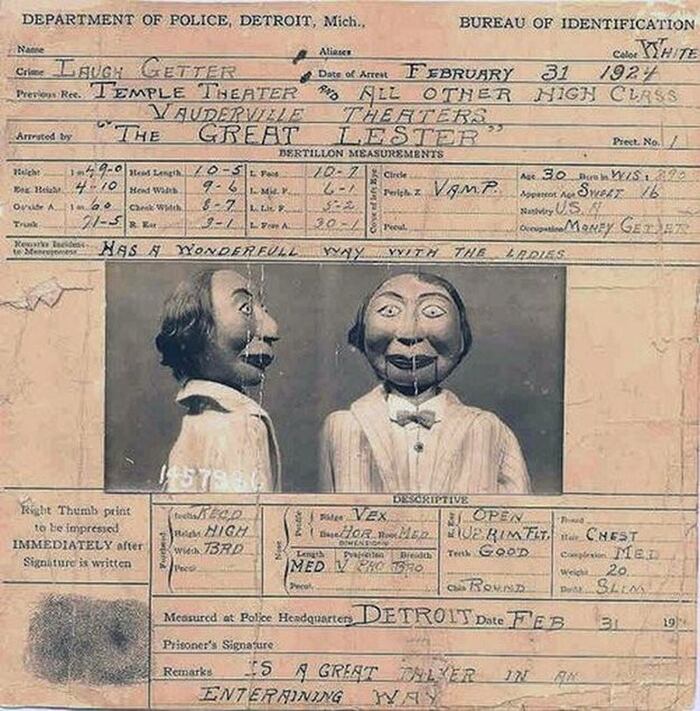 DEPARTMENT OF POLICE, DETROIT, Mich., BUREAU OF IDENTIFICATION
Name Aliases Color WHITE
Crime LAUGH GETTER Date of Arrest FEBRUARY 31 1924
Previous Rec. TEMPLE THEATER AND ALL OTHER HIGH CLASS
VAUDERVILLE THEATERS
Arrested by "THE GREAT LESTER" Prect. No. 1
BERTILLON MEASUREMENTS
Height 1 m 49-0 Head Length 10-5 L. Foot 10-7 Circle Age 30 Born in WIS:
Eng. Height 4-10 Head Width 9-6 L. Mid. F. 6-1 Periph. Z VAMP. Apparent Age SWEET 16
Outside A. 1 m 60 Cheek Width 8-7 L. Lit. F. 5-2 Nativity U.S.A
Trunk 71-5 R. Ear 3-1 L. Fore A. 30-1 Pecul. Occupation MONEY GETTER
Color of left Eye
Remarks Incident to Measurement HAS A WONDERFULL WAY WITH THE LADIES
DESCRIPTIVE
Right Thumb print
to be impressed
IMMEDIATELY after
Signature is written
Forehead
Height HIGH
Width BRD
Pecul.
Nose
Profile
Ridge VEX
Base HOR Root MED
DIMENSIONS
Length Projection Breadth
MED
Pecul.
R. Ear
OPEN
UP.RIM FLT.
Teeth GOOD
Chin ROUND
Beard
Hair CHEST
Complexion MED
Weight 20
Build SLIM
Measured at Police Headquarters DETROIT Date FEB 31 19
Prisoner's Signature
Remarks IS A GREAT TALKER IN AN
ENTERAINING WAY